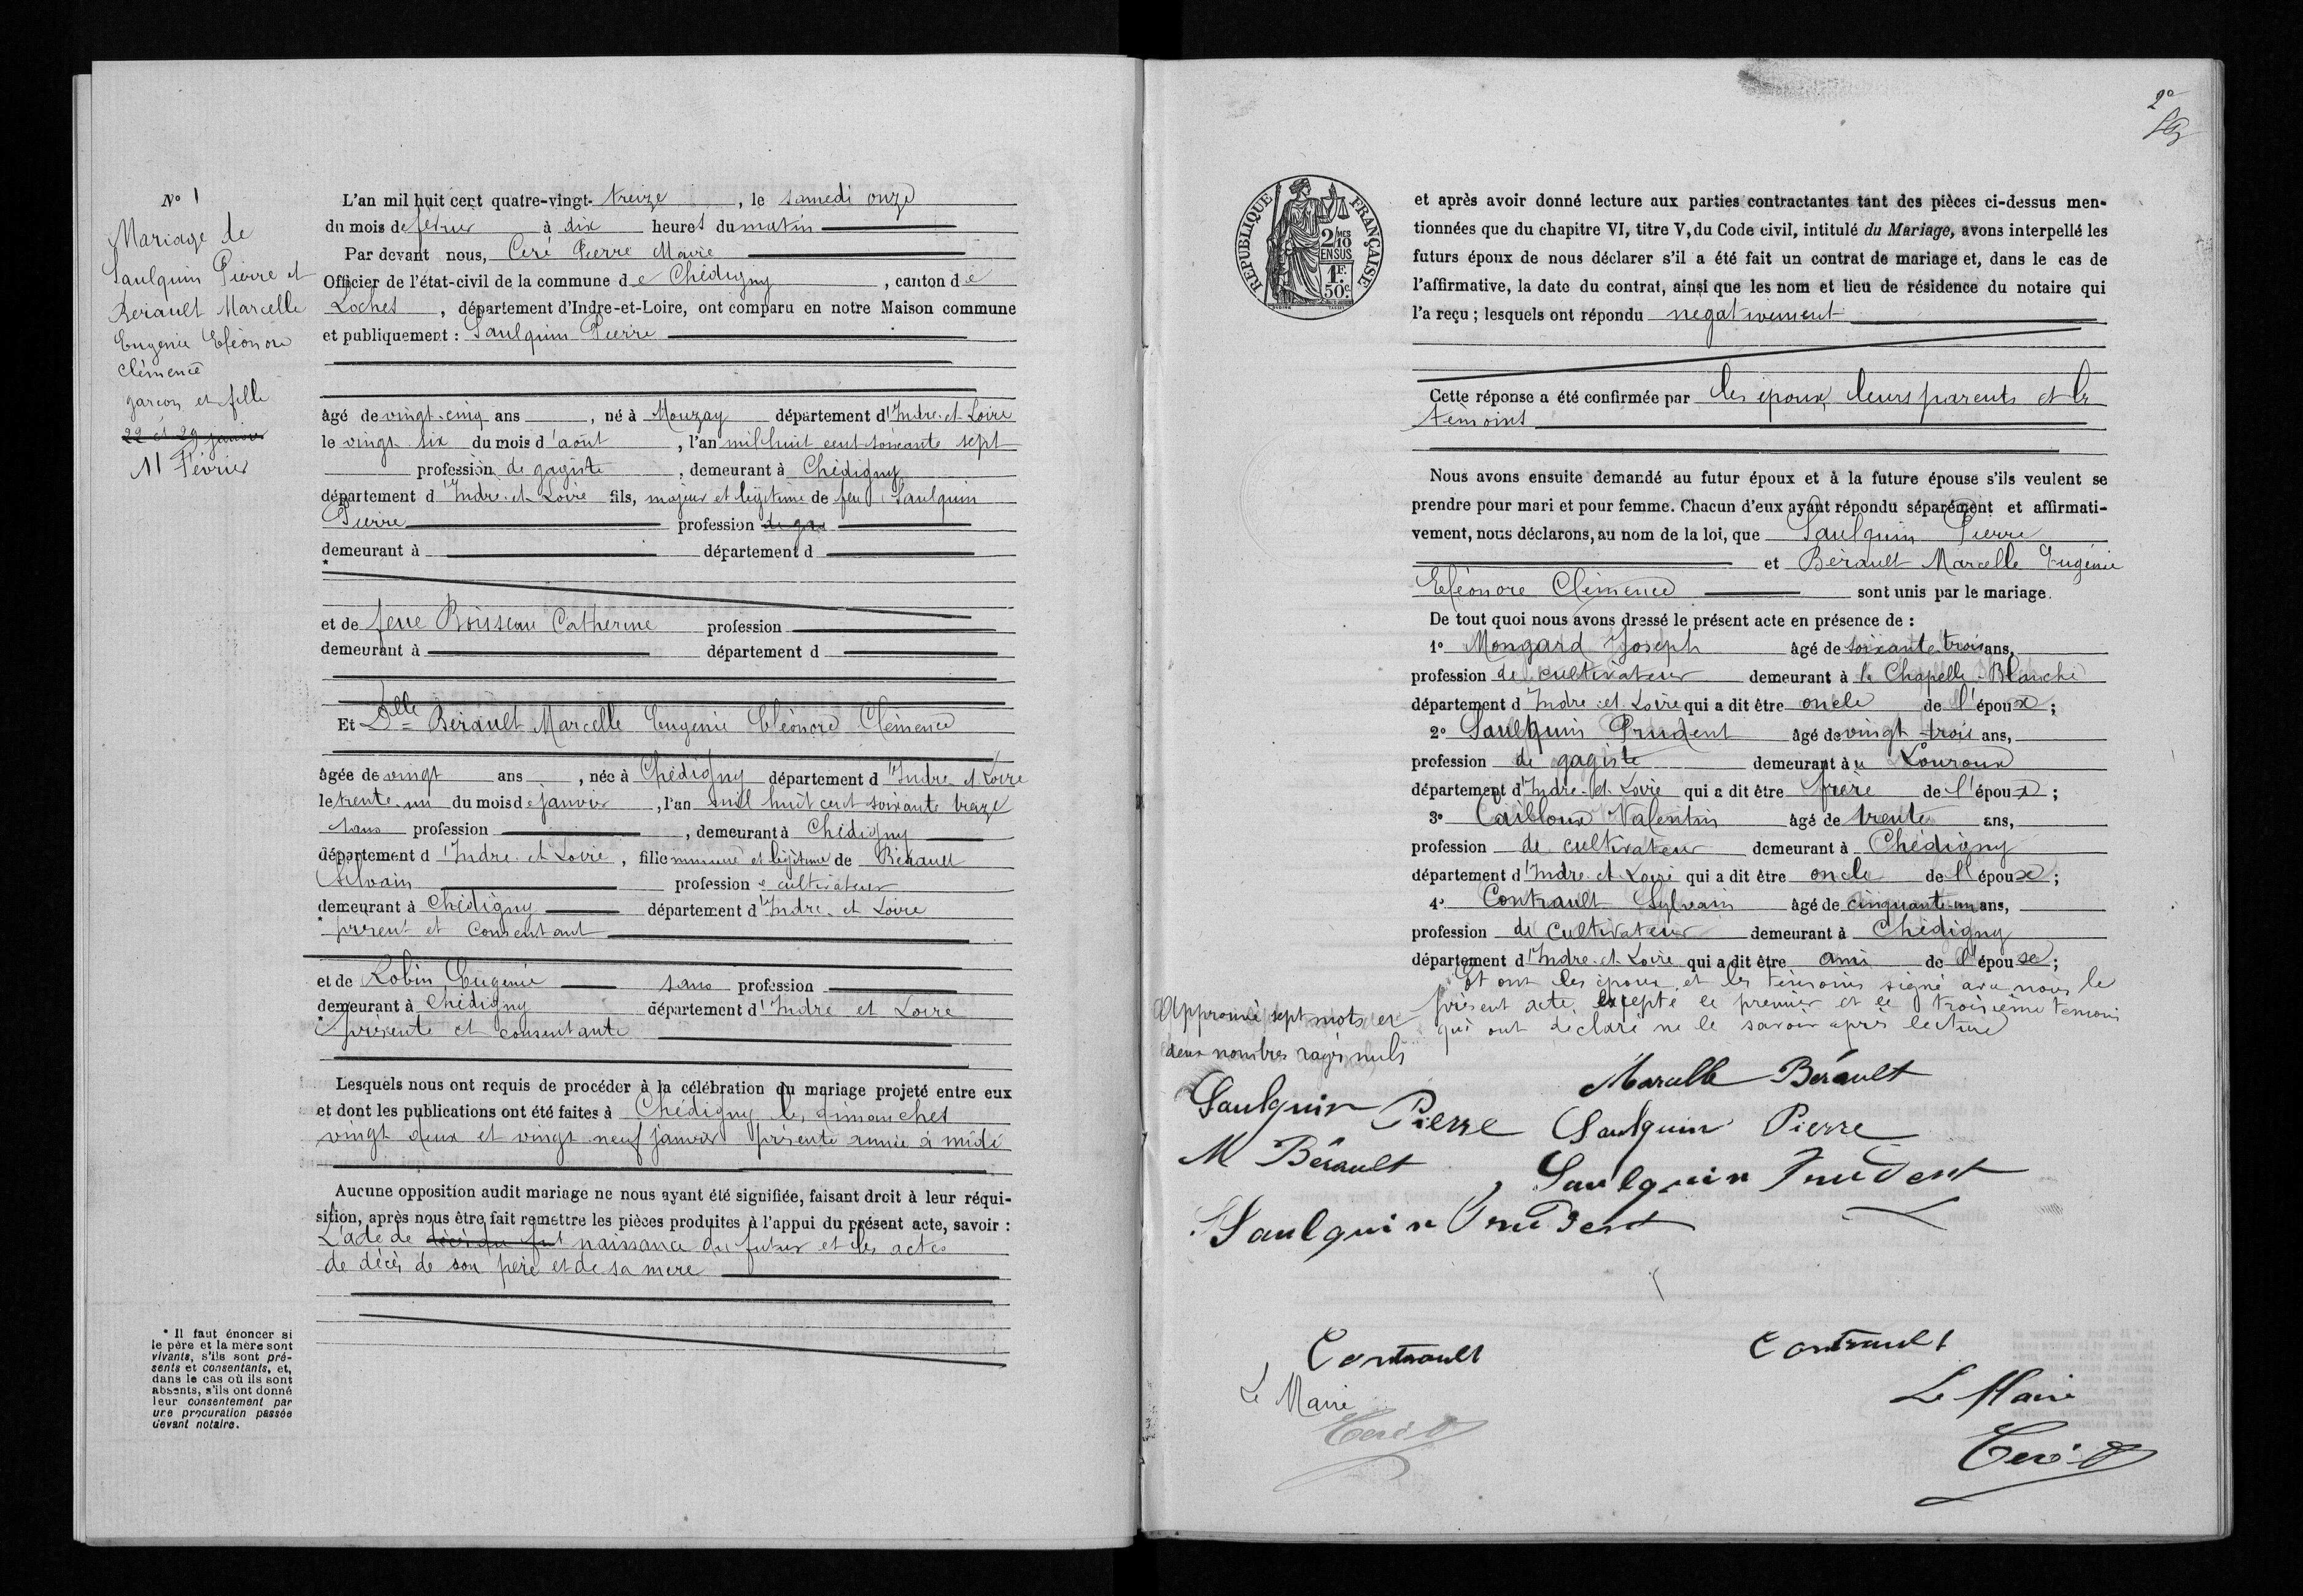 N° 1
Mariage de
Saulquin Pierre et
Berault Marcelle
Eugenie Eléonore
Clémence
garçon et fille
22 et 29 janvier
11 Février
L'an mil huit cent quatre-vingt- treize , le samedi onze
du mois de février à dix heures du matin
Par devant nous, Ceré Pierre Maire
Officier de l'état-civil de la commune de Chédigny , canton de
Loches , département d'Indre-et-Loire, ont comparu en notre Maison commune
et publiquement : Saulquin Pierre
âgé de vingt-cinq ans , né à Mouzay département d'Indre-et-Loire
le vingt six du mois d'août , l'an mil huit cent soixante sept
profession de gagiste , demeurant à Chédigny
département d'Indre-et-Loire fils, majeur et légitime de feu Saulquin
Pierre profession
demeurant à département d
*
et de feue Boisseau Catherine profession
demeurant à département d
Et Dlle Berault Marcelle Eugenie Eléonore Clémence
âgée de vingt ans , née à Chédigny département d'Indre et Loire
le trente-un du mois de janvier , l'an mil huit cent soixante treize
sans profession , demeurant à Chédigny
département d'Indre-et-Loire , fille mineure et légitime de Berault
Silvain profession cultivateur
demeurant à Chédigny département d'Indre-et Loire
* présent et consentant
et de Robin Eugenie sans profession
demeurant à Chédigny département d'Indre et Loire
* présente et consentante
Lesquels nous ont requis de procéder à la célébration du mariage projeté entre eux
et dont les publications ont été faites à Chédigny les dimanches
vingt deux et vingt neuf janvier présente année à midi
Aucune opposition audit mariage ne nous ayant été signifiée, faisant droit à leur réqui-
sition, après nous être fait remettre les pièces produites à l'appui du présent acte, savoir :
L'acte de naissance du futur et les actes
de décès de son père et de sa mere
* Il faut énoncer si
le père et la mère sont
vivants, s'ils sont pré-
sents et consentants, et,
dans le cas où ils sont
absents, s'ils ont donné
leur consentement par
une procuration passée
devant notaire.
2e
REPUBLIQUE FRANÇAISE
2/10 MES
EN SUS
1F.
50c.
et après avoir donné lecture aux parties contractantes tant des pièces ci-dessus men-
tionnées que du chapitre VI, titre V, du Code civil, intitulé du Mariage, avons interpellé les
futurs époux de nous déclarer s'il a été fait un contrat de mariage et, dans le cas de
l'affirmative, la date du contrat, ainsi que les nom et lieu de résidence du notaire qui
l'a reçu ; lesquels ont répondu negativement
Cette réponse a été confirmée par les époux, leurs parents et les
témoins
Nous avons ensuite demandé au futur époux et à la future épouse s'ils veulent se
prendre pour mari et pour femme. Chacun d'eux ayant répondu séparément et affirmati-
vement, nous déclarons, au nom de la loi, que Saulquin Pierre
et Bérault Marcelle Eugénie
Eléonore Clémence sont unis par le mariage.
De tout quoi nous avons dressé le présent acte en présence de :
1° Mongard Joseph âgé de soixante trois ans,
profession de cultivateur demeurant à la Chapelle Blanche
département d'Indre-et-Loire qui a dit être oncle de l'époux ;
2° Saulquin Prudent âgé de vingt trois ans,
profession de gagiste demeurant au Louroux
département d'Indre-et-Loire qui a dit être frère de l'époux ;
3° Cailloux Valentin âgé de trente ans,
profession de cultivateur demeurant à Chédigny
département d'Indre-et-Loire qui a dit être oncle de l'époux ;
4° Contrault Sylvain âgé de cinquante-un ans,
profession de Cultivateur demeurant à Chédigny
département d'Indre-et-Loire qui a dit être ami de l'épouse ;
Et ont les époux et les témoins signé avec nous le
présent acte, excepté le premier et le troisième temoins
qui ont déclaré ne le savoir après lecture
Approuvé sept mots et
deux nombres rayés nuls
Marcelle Berault
Saulquin Pierre Saulquin Pierre
M Bérault Saulquin Prudent
Saulquin Prudent
Contrault Contrault
Le Maire Le Maire
Ceré Ceré